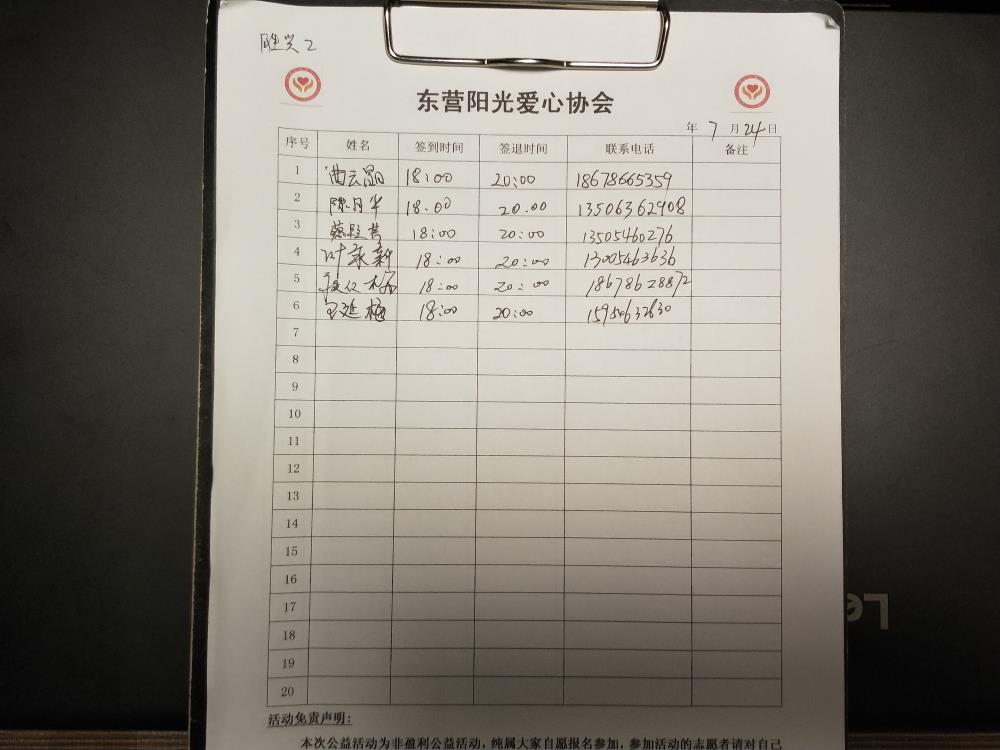 胜兴2
东营阳光爱心协会
年 7 月 24 日
序号 姓名 签到时间 签退时间 联系电话 备注
1 曲云 18:00 20:00 18678665359
2 陈月华 18.00 20.00 13506362908
3 蔡 18:00 20:00 13505460276
4 叶永新 18:00 20:00 13005463636
5 18:00 20:00 18678628872
6 王延梅 18:00 20:00 15954632630
7
8
9
10
11
12
13
14
15
16
17
18
19
20
活动免责声明:
本次公益活动为非盈利公益活动，纯属大家自愿报名参加，参加活动的志愿者请对自己
Le